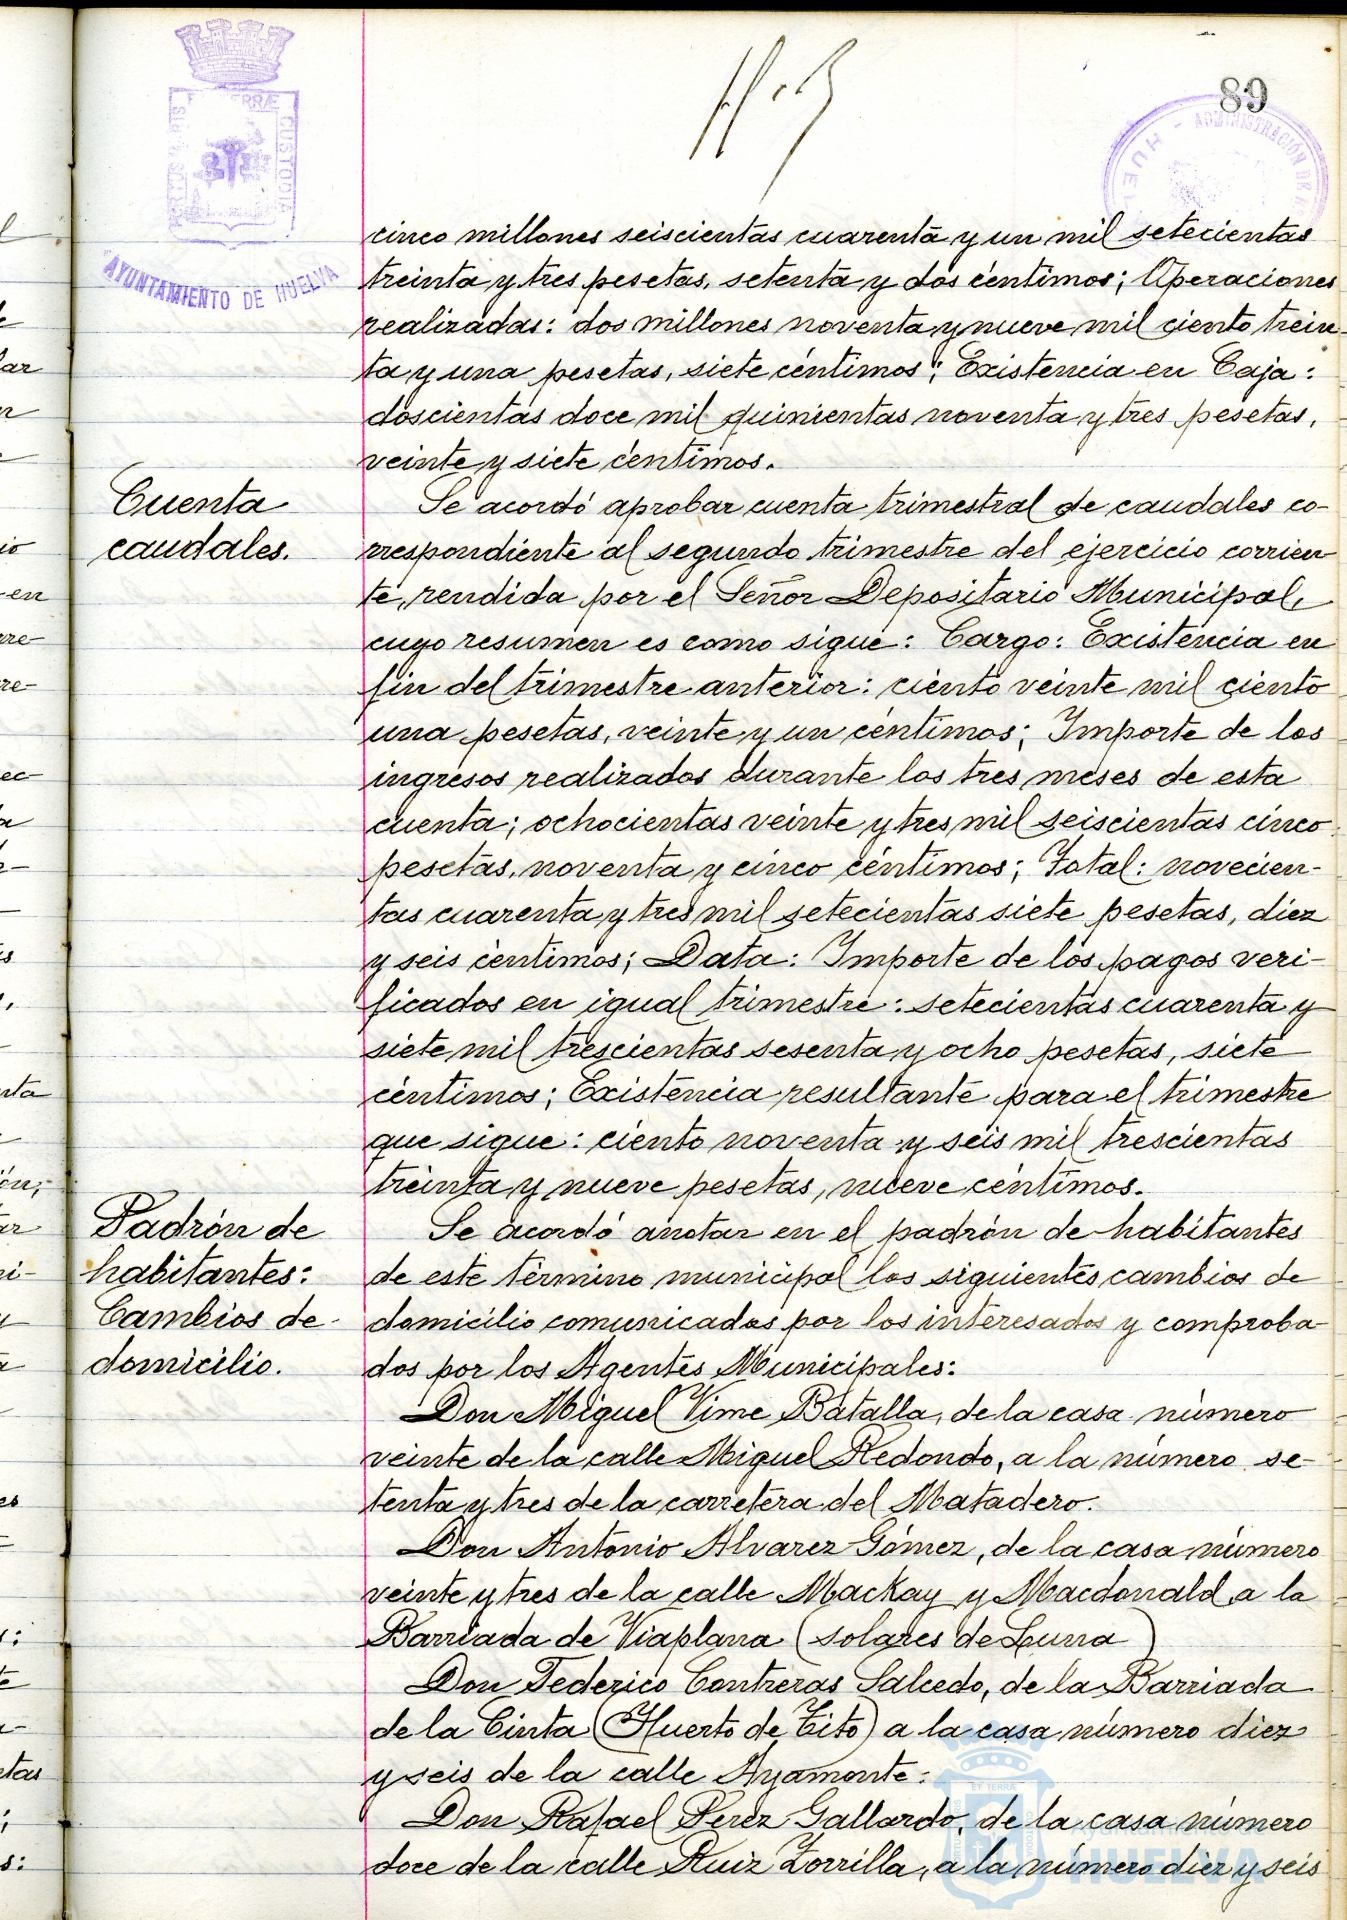 89
PORTUS MARIS ET TERRÆ CUSTODIA
AYUNTAMIENTO DE HUELVA
ADMINISTRACIÓN DE
cinco millones seiscientas cuarenta y un mil setecientas
treinta y tres pesetas, setenta y dos céntimos; Operaciones
realizadas: dos millones noventa y nueve mil ciento trein-
ta y una pesetas, siete céntimos; Existencia en Caja:
doscientas doce mil quinientas noventa y tres pesetas,
veinte y siete céntimos.
Cuenta
caudales.
Se acordó aprobar cuenta trimestral de caudales co-
rrespondiente al segundo trimestre del ejercicio corrien-
te, rendida por el Señor Depositario Municipal,
cuyo resumen es como sigue: Cargo: Existencia en
fin del trimestre anterior: ciento veinte mil ciento
una pesetas, veinte y un céntimos; Importe de los
ingresos realizados durante los tres meses de esta
cuenta; ochocientas veinte y tres mil seiscientas cinco
pesetas, noventa y cinco céntimos; Total: novecien-
tas cuarenta y tres mil setecientas siete pesetas, diez
y seis céntimos; Data: Importe de los pagos veri-
ficados en igual trimestre: setecientas cuarenta y
siete mil trescientas sesenta y ocho pesetas, siete
céntimos; Existencia resultante para el trimestre
que sigue: ciento noventa y seis mil trescientas
treinta y nueve pesetas, nueve céntimos.
Padrón de
habitantes:
Cambios de
domicilio.
Se acordó anotar en el padrón de habitantes
de este término municipal los siguientes cambios de
domicilio comunicados por los interesados y comproba-
dos por los Agentes Municipales:
Don Miguel Vime Batalla, de la casa número
veinte de la calle Miguel Redondo, a la número se-
tenta y tres de la carretera del Matadero.
Don Antonio Alvarez Gómez, de la casa número
veinte y tres de la calle Mackay y Macdonald, a la
Barriada de Viaplana (solares de Luna)
Don Federico Contreras Salcedo, de la Barriada
de la Cinta (Huerto de Tito) a la casa número diez
y seis de la calle Ayamonte:
Don Rafael Perez Gallardo, de la casa número
doce de la calle Ruiz Zorrilla, a la número diez y seis
Ayuntamiento de
HUELVA